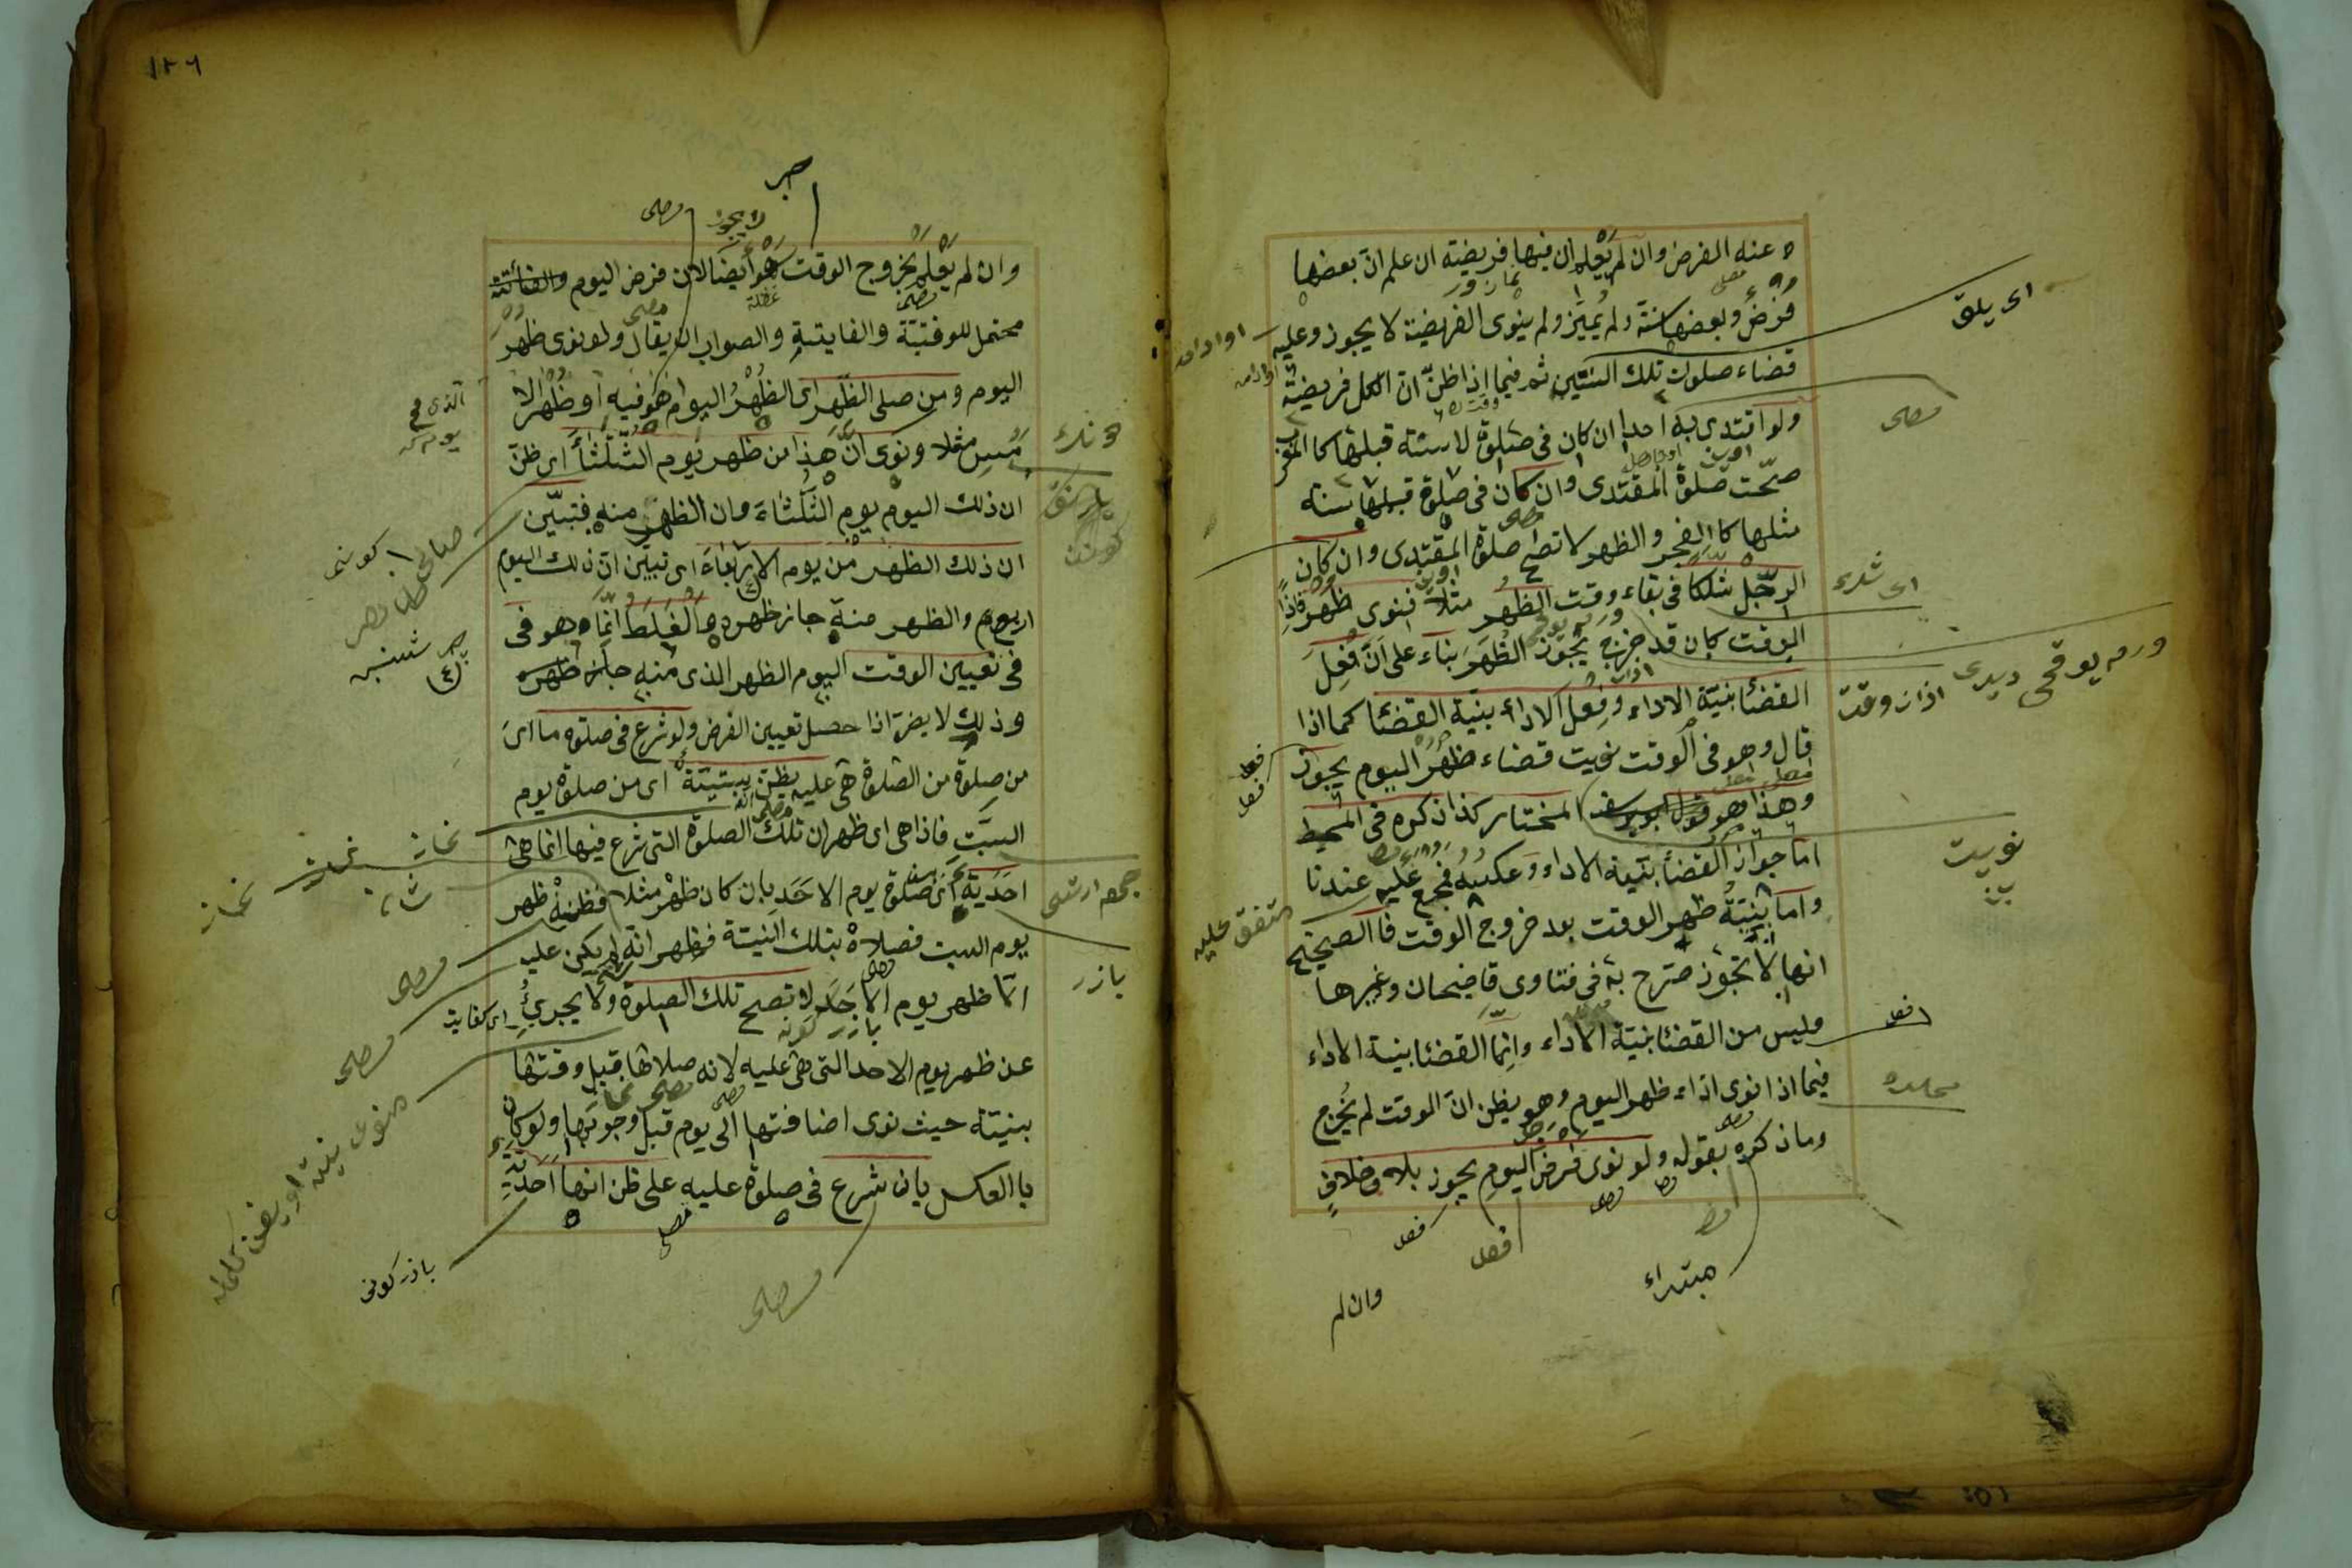 ه عنه الفرض وان لم يعلم ان فيها فريضة ان علم ان بعضها
فرض وبعضها سنة ولم يميز ولم ينوى الفريضة لا يجوز وعليه
قضاء صلوت تلك السنتين ثم فيما اذا ظن ان الكل فريضة
ولو اقتدى به احد ان كان فى صلوة لا سنة قبلها كا المغرب
صحت صلوة المقتدى وان كان فى صلوة قبلها سنة
مثلها كا الفجر والظهر لا تصح صلوة المقتدى وان كان
الرجل شككا فى بقاء وقت الظهر مثلا فنوى ظهر فاذا
الوقت كان قد خرج يجوز الظهر بناء على ان فعل
القضا بنية الاداء وفعل الاداء بنية القضا كما اذا
قال وهو فى الوقت نويت قضاء ظهر اليوم يجوز
وهذا هو المختار كذا ذكره فى المحيط
اما جواز القضا بنية الاداء وعكسه فمجمع عليه عندنا
واما بنية ظهر الوقت بعد خروج الوقت فا الصحيح
انها لا تجوز صرح به فى فتاوى قاضيحان وغيرها
وليس من القضا بنية الاداء وانما القضا بنية الاداء
فيما اذا نوى اداء ظهر اليوم وهو يظن ان الوقت لم يخرج
وما ذكره بقوله ولو نوى فرض اليوم يجوز بلا خلاف
اى يلق
مصلى
اى شك
نويت
متفق عليه
مبتداء
وان لم
١٢٦
خبر
لا يجوز
مصلى
وان لم يعلم بخروج الوقت هو ايضا لان فرض اليوم والفائتة
محتمل للوقتية والفايتة والصواب ان يقال ولو نوى ظهر
اليوم ومن صلى الظهر اى الظهر اليوم هو فيه او ظهر الا
مس مثلا ونوى ان هذا من ظهر يوم الثلثا اى ظن
ان ذلك اليوم يوم الثلثاء وان الظهر منه فتبين
ان ذلك الظهر من يوم الاربعاء اى تبين ان ذلك اليوم
اربع والظهر منه جاز ظهره والغلط انما هو فى
فى تعيين الوقت اليوم الظهر الذى منه جاز ظهره
وذلك لا يضر اذا حصل تعيين الفرض ولو شرع فى صلوة ما اى
من صلوة من الصلوة هى عليه يظن سبتية اى من صلوة يوم
السبت فاذا هى اى ظهر ان تلك الصلوة التى شرع فيها انما هى
احدية اى صلوة يوم الاحد بان كان ظهر مثلا فظنه ظهر
يوم السبت فصلاه بتلك النية فظهر انه لم يكن عليه
الا ظهر يوم الاحد لا تصح تلك الصلوة ولا يجزئ
عن ظهر يوم الاحد التى هى عليه لانه صلاها قبل وقتها
بنيته حيث نوى اضافتها الى يوم قبل وجوبها ولو كان
با العكس بان شرع فى صلوة عليه على ظن انها احدية
الذى فى
جمعه ارتسى
بازر
مصلى
مصلى
بازر كونى
مصلى